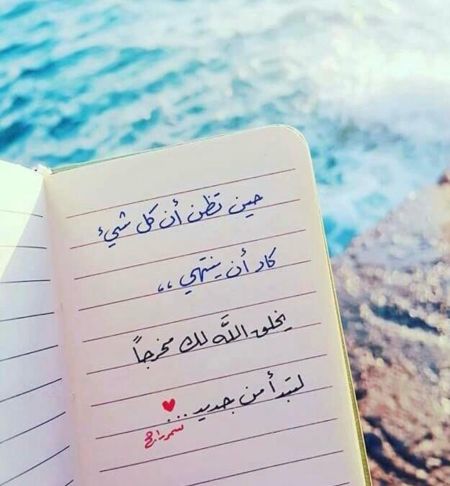 حين تظن أن كل شيء
كاد أن ينتهي ،،
يخلق اللَّه لك مخرجاً
لتبدأ من جديد ...